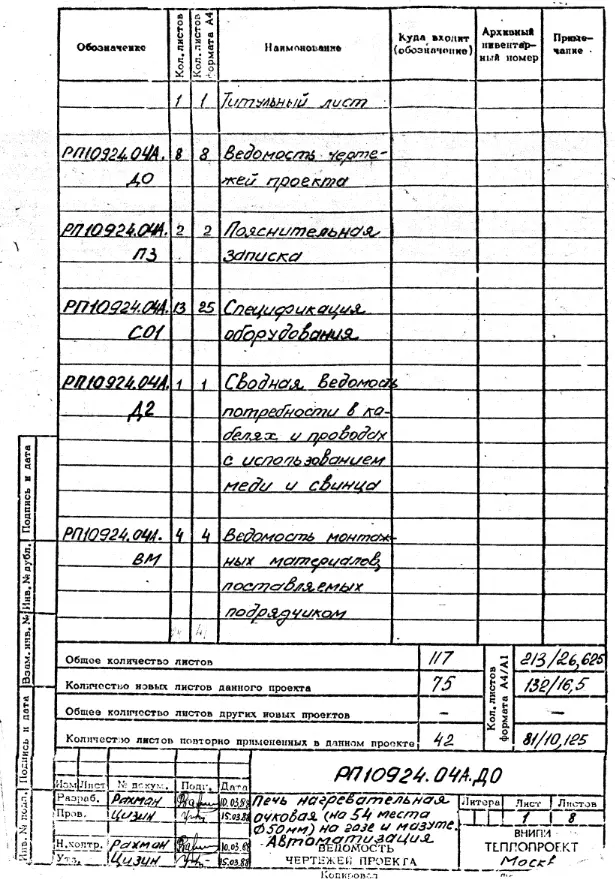 Обозначение Кол. листов Кол. листов формата А4 Наименование Куда входит (обозначение) Архивный инвентарный номер Примечание
1 1 Титульный лист
РП10924.04А. 8 8 Ведомость черте-
ДО жей проекта
РП10924.04А. 2 2 Пояснительная
ПЗ записка
РП10924.04А. 13 25 Спецификация
СО1 оборудования
РП10924.04А. 1 1 Сводная ведомость
Д2 потребности в ка-
белях и проводах
с использованием
меди и свинца
РП10924.04А. 4 4 Ведомость монтаж-
ВМ ных материалов,
поставляемых
подрядчиком
Общее количество листов 117 Кол. листов формата А4/А1 213/26,625
Количество новых листов данного проекта 75 132/16,5
Общее количество листов других новых проектов — —
Количество листов повторно примененных в данном проекте 42 81/10,125
Подпись и дата
Инв. № дубл.
Взам. инв. №
Подпись и дата
Инв. № подл.
РП10924.04А.ДО
Изм Лист № докум. Подп. Дата
Разраб. Рахман 10.03.88
Пров. Цизин 15.03.88
Н.контр. Рахман 10.03.88
Утв. Цизин 15.03.88
Печь нагревательная
очковая (на 54 места
Ф50мм) на газе и мазуте.
Автоматизация
ВЕДОМОСТЬ
ЧЕРТЕЖЕЙ ПРОЕКТА
Литера Лист Листов
1 8
ВНИПИ
ТЕПЛОПРОЕКТ
Копировал